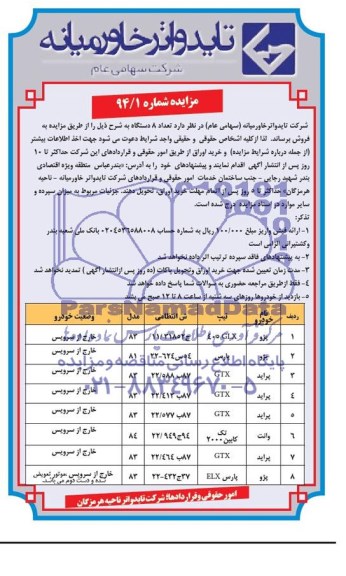 تایدواتر خاورمیانه
شرکت سهامی عام
مزایده شماره ۹۴/۱
شرکت تایدواترخاورمیانه (سهامی عام) در نظر دارد تعداد ۸ دستگاه به شرح ذیل را از طریق مزایده به
فروش برساند. لذا از کلیه اشخاص حقوقی و حقیقی واجد شرایط دعوت می شود جهت اخذ اطلاعات بیشتر
(از جمله درباره شرایط مزایده) و خرید اوراق از طریق امور حقوقی و قراردادهای این شرکت حداکثر تا ۱۰
روز پس از انتشار آگهی اقدام نمایند و پیشنهادهای خود را به آدرس: «بندرعباس منطقه ویژه اقتصادی
بندر شهید رجایی - جنب ساختمان خدمات امور حقوقی و قراردادهای شرکت تایدواتر خاورمیانه - ناحیه
هرمزگان» حداکثر تا روز پس از اتمام مهلت خرید اوراق، تحویل دهند. جزئیات مربوط به میزان سپرده و
سایر موارد در اسناد مزایده درج شده است.
تذکر:
۱- ارائه فیش واریز مبلغ ۱۰۰/۰۰۰ ریال به شماره حساب بانک ملی شعبه بندر
وکشتیرانی الزامی است
۲- به پیشنهادهای فاقد سپرده ترتیب اثر داده نخواهد شد
۳- مدت زمان تعیین شده جهت خرید اوراق وتحویل پاکات (ده روز پس ازانتشار آگهی) تمدید نخواهد شد
۴- فقط ازطریق مراجعه حضوری به سوالات شما پاسخ داده خواهد شد
۵- بازدید از خودروها روزهای سه شنبه از ساعت ۸ تا ۱۲ صبح می باشد
ردیف نام خودرو تیپ ش انتظامی مدل وضعیت خودرو
۱ پژو ۴۰۵ GLX ۸۳ خارج از سرویس
۲ پژو پارس ۸۱ خارج از سرویس
۳ پراید GTX ۸۳ خارج از سرویس
۴ پراید GTX ۸۳ خارج از سرویس
۵ پراید GTX ۸۳ خارج از سرویس
۶ وانت تک کابین ۲۰۰۰ ۸۴ خارج از سرویس
۷ پراید GTX ۸۳ خارج از سرویس
۸ پژو پارس ELX ۸۳ خارج از سرویس ،موتور تعویض شده و دست دوم می باشد.
امور حقوقی و قراردادها: شرکت تایدواتر ناحیه هرمزگان
ParsNamadData
پایگاه اطلاع رسانی مناقصه و مزایده
۰۲۱-۸۸۳۴۹۶۷۰-۵